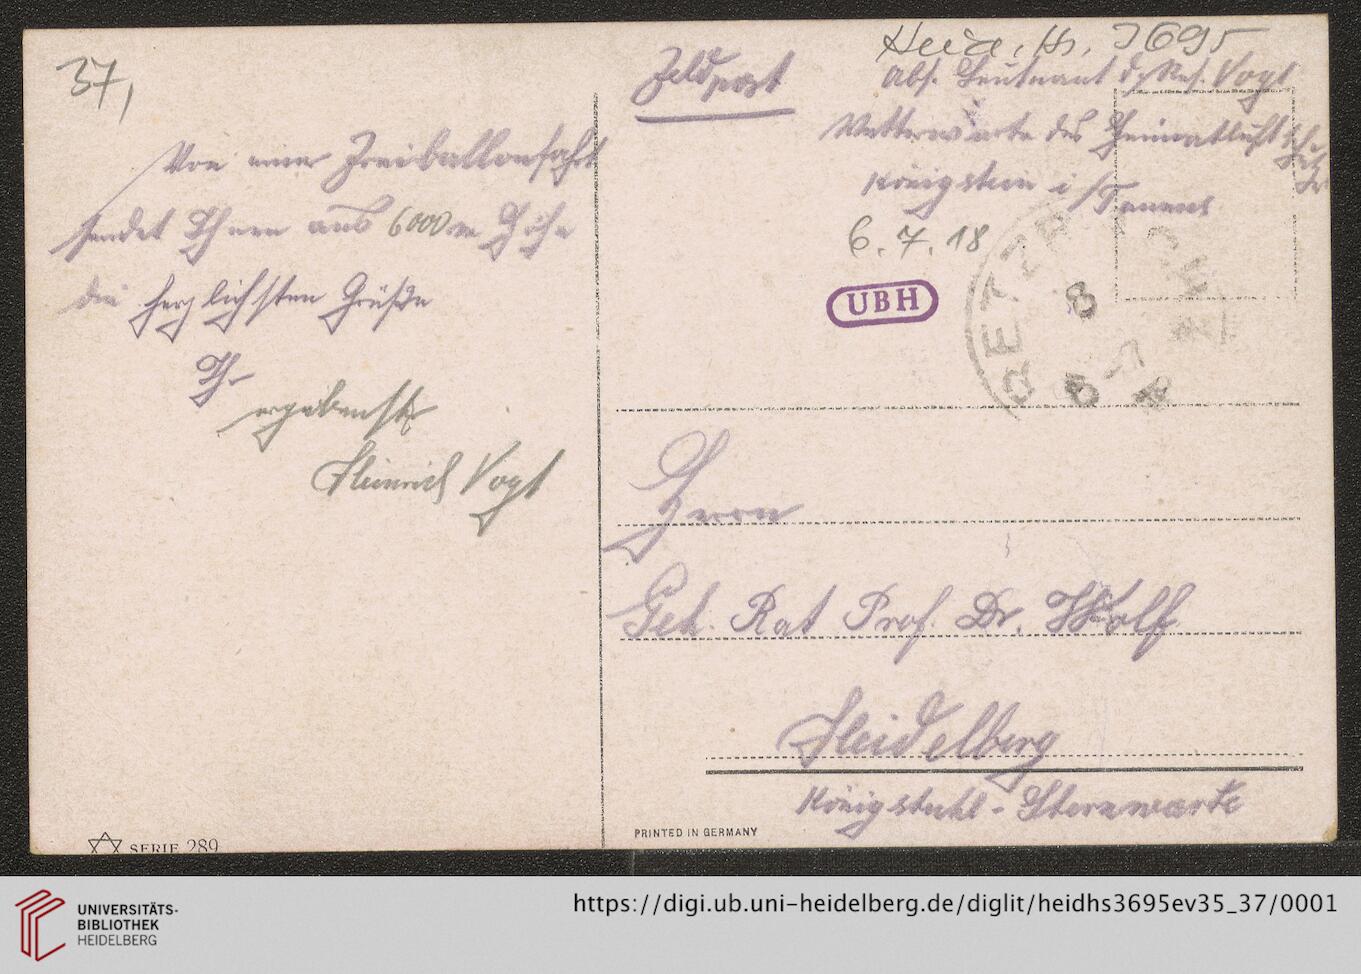 37,
Feldpost
Heid. Hs. 3695
Abs. Leutnant d. Res. Vogt
Wetterwarte des Heimatluftschutzes
Königstein i/Taunus
6.7.18
UBH
Von einer Freiballonfahrt
sendet Ihnen aus 6000 m Höhe
die herzlichsten Grüße
Ihr
ergebenster
Heinrich Vogt
8
8 -7
Herrn
Geh. Rat Prof. Dr. Wolf
Heidelberg
Königstuhl-Sternwarte
SERIE 289
PRINTED IN GERMANY
UNIVERSITÄTS-
BIBLIOTHEK
HEIDELBERG
https://digi.ub.uni-heidelberg.de/diglit/heidhs3695ev35_37/0001